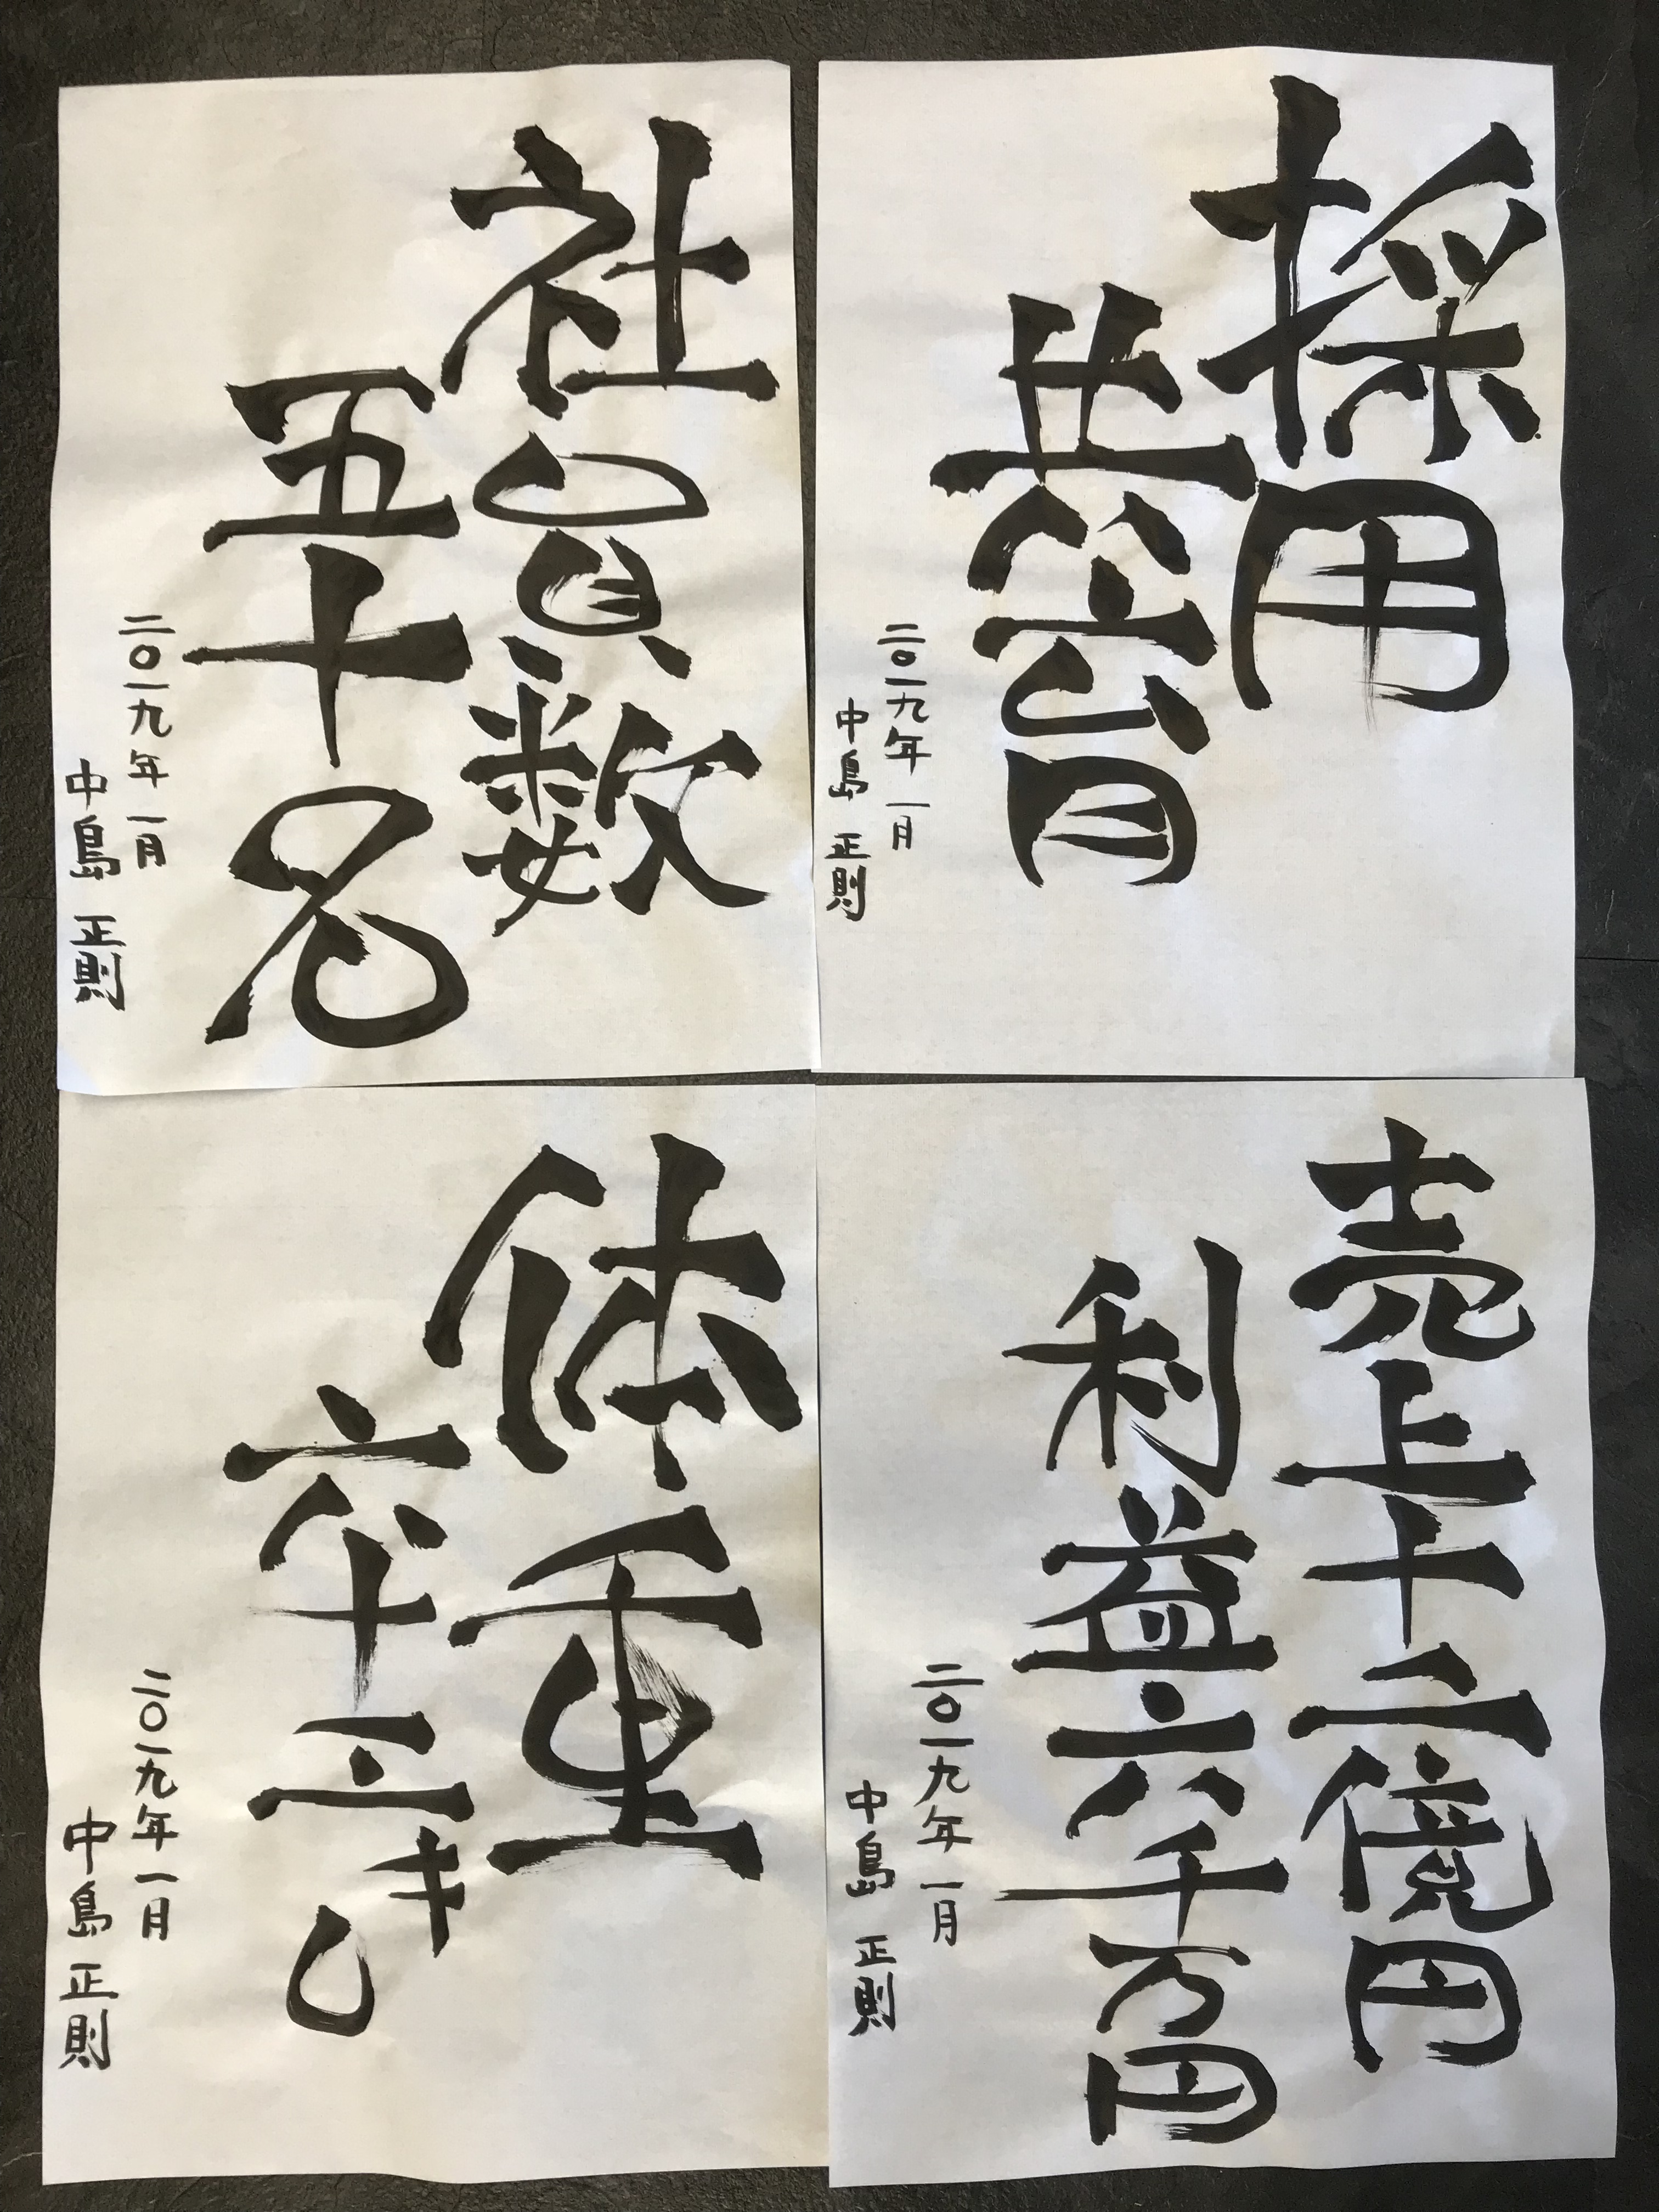 採用
共育
二〇一九年一月
中島 正則
社員数
五十名
二〇一九年一月
中島 正則
売上十二億円
利益六千万円
二〇一九年一月
中島 正則
体重
六十三キロ
二〇一九年一月
中島 正則